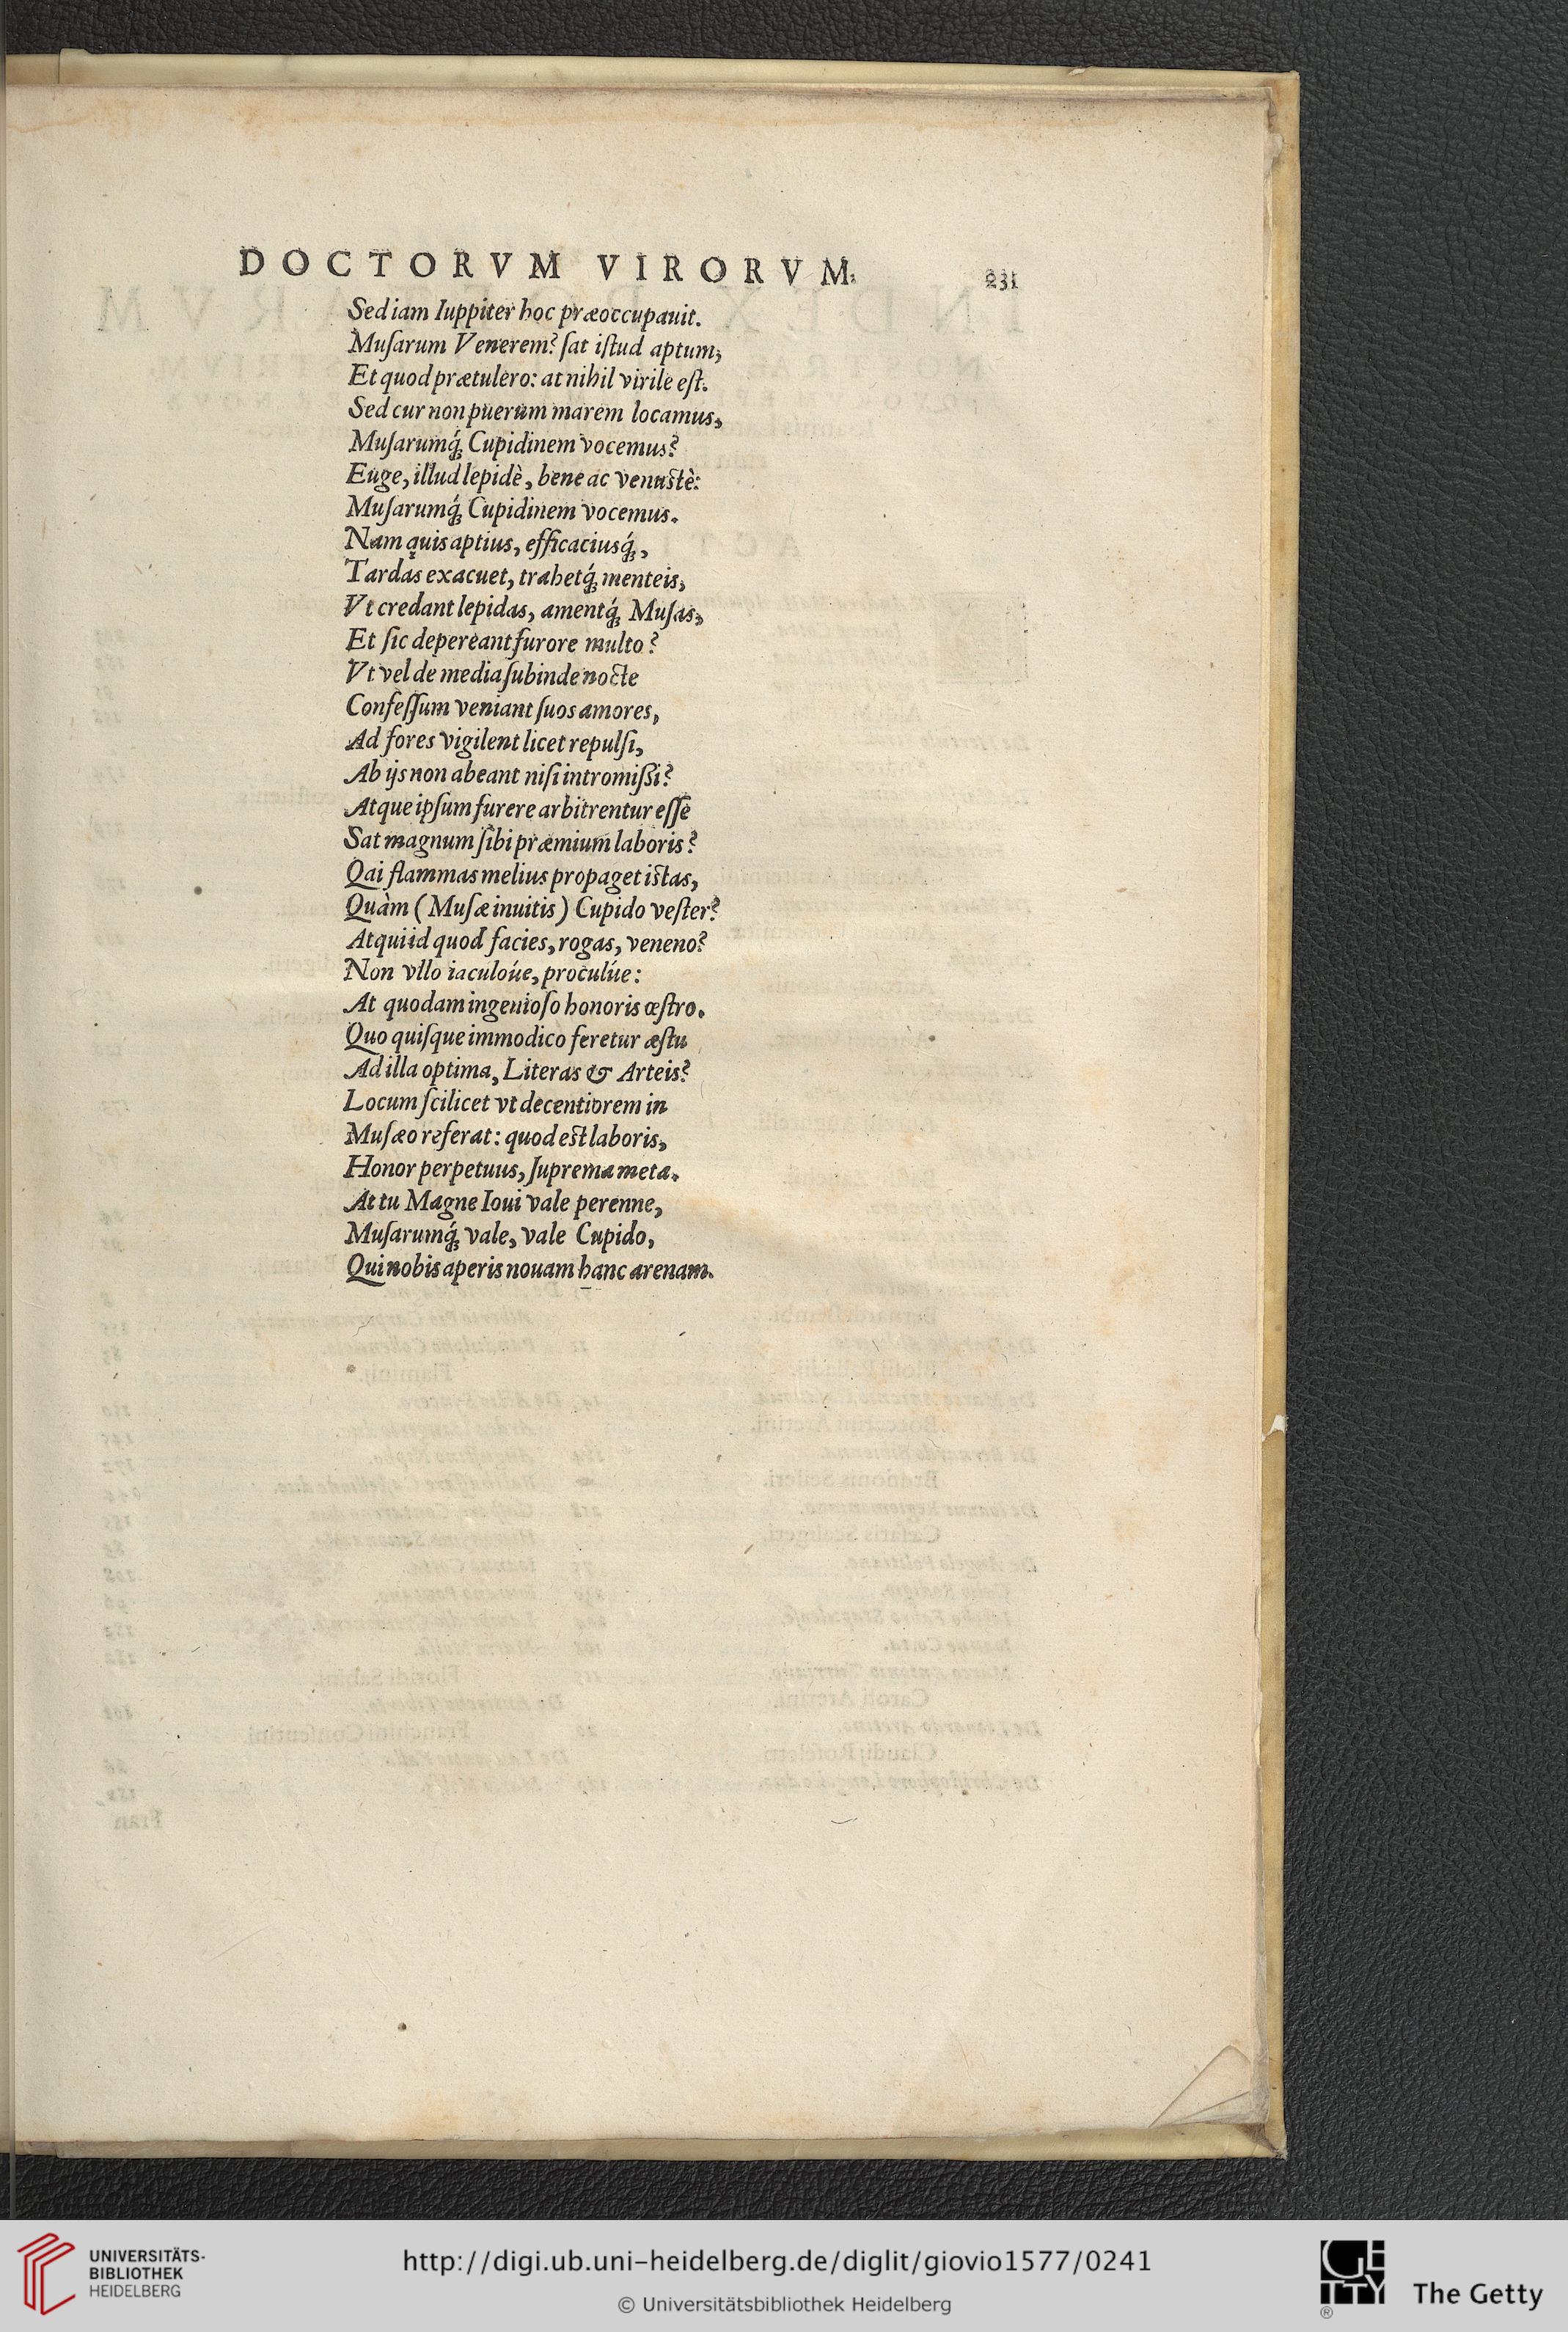 DOCTORVM VIRORVM. 231
Sed iam Iuppiter hoc præoccupauit.
Muſarum Venerem? ſat iſtud aptum,
Et quod prætulero: at nihil virile eſt.
Sed cur non puerum marem locamus,
Muſarumq́; Cupidinem vocemus?
Euge, illud lepidè, bene ac venustè:
Muſarumq́; Cupidinem vocemus.
Nam quis aptius, efficaciusq́;,
Tardas exacuet, trahetq́; menteis,
Vt credant lepidas, amentq́; Muſas,
Et ſic depereant furore multo?
Vt vel de media ſubinde nocte
Confeſſum veniant ſuos amores,
Ad fores vigilent licet repulſi,
Ab ijs non abeant niſi intromißi?
Atque ipſum furere arbitrentur eſſe
Sat magnum ſibi præmium laboris?
Qai flammas melius propaget istas,
Quàm (Muſæ inuitis) Cupido veſter?
Atqui id quod facies, rogas, veneno?
Non vllo iaculóue, proculúe:
At quodam ingenioſo honoris œſtro.
Quo quiſque immodico feretur æſtu
Ad illa optima, Literas & Arteis?
Locum ſcilicet vt decentiorem in
Muſæo referat: quod est laboris,
Honor perpetuus, ſuprema meta.
At tu Magne Ioui vale perenne,
Muſarumq́; vale, vale Cupido,
Qui nobis aperis nouam hanc arenam.
UNIVERSITÄTS-
BIBLIOTHEK
HEIDELBERG
http://digi.ub.uni-heidelberg.de/diglit/giovio1577/0241
© Universitätsbibliothek Heidelberg
GETTY
®
The Getty